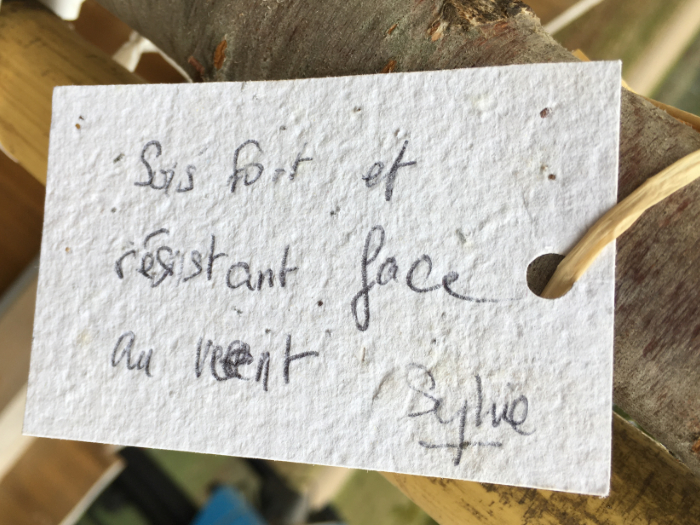 Sois fort et
résistant face
au vent
Sylvie